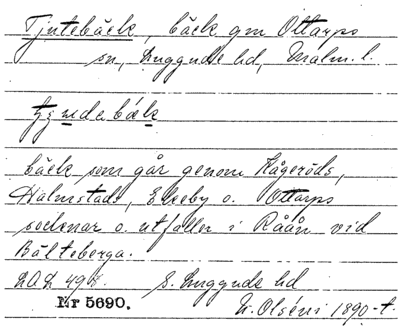 Tjutebäck, bäck gm Ottarps
sn, Luggude hd, Malm. l.
bäck som går genom Kågeröds,
Halmstads, Ekeby o. Ottarps
socknar o. utfaller i Råån vid
Bälteberga.
S. Luggude hd
Nr 5690.
N. Olséni 1890-t.